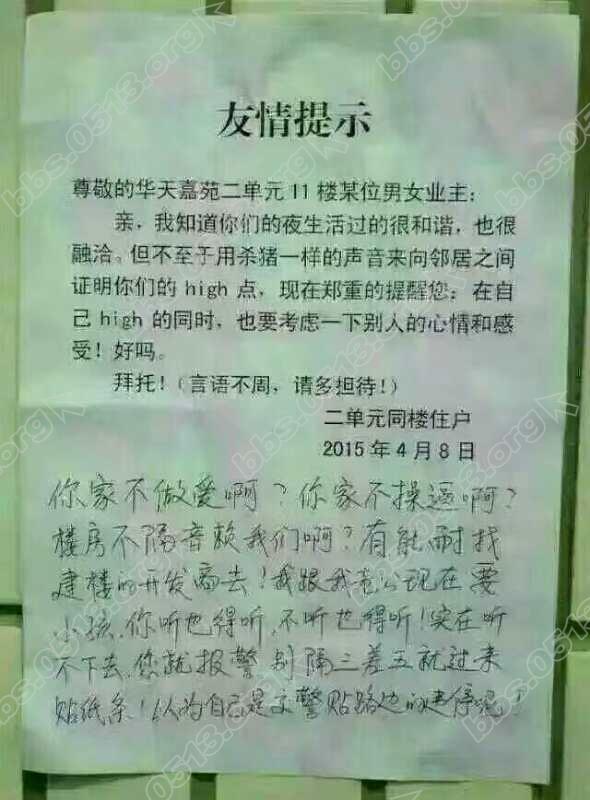 友情提示
尊敬的华天嘉苑二单元 11 楼某位男女业主：
亲，我知道你们的夜生活过的很和谐，也很
融洽。但不至于用杀猪一样的声音来向邻居之间
证明你们的 high 点，现在郑重的提醒您：在自
己 high 的同时，也要考虑一下别人的心情和感
受！好吗。
拜托！（言语不周，请多担待！）
二单元同楼住户
2015 年 4 月 8 日
你家不做爱啊？你家不操逼啊？
楼房不隔音赖我们啊？有能耐找
建楼的开发商去！我跟我老公现在要
小孩，你听也得听，不听也得听！实在听
不下去，您就报警 别隔三差五就过来
贴纸条！以为自己是交警贴路边的违停呢！
bbs.0513.org
bbs.0513.org
bbs.0513.org
bbs.0513.org
bbs.0513.org
bbs.0513.org